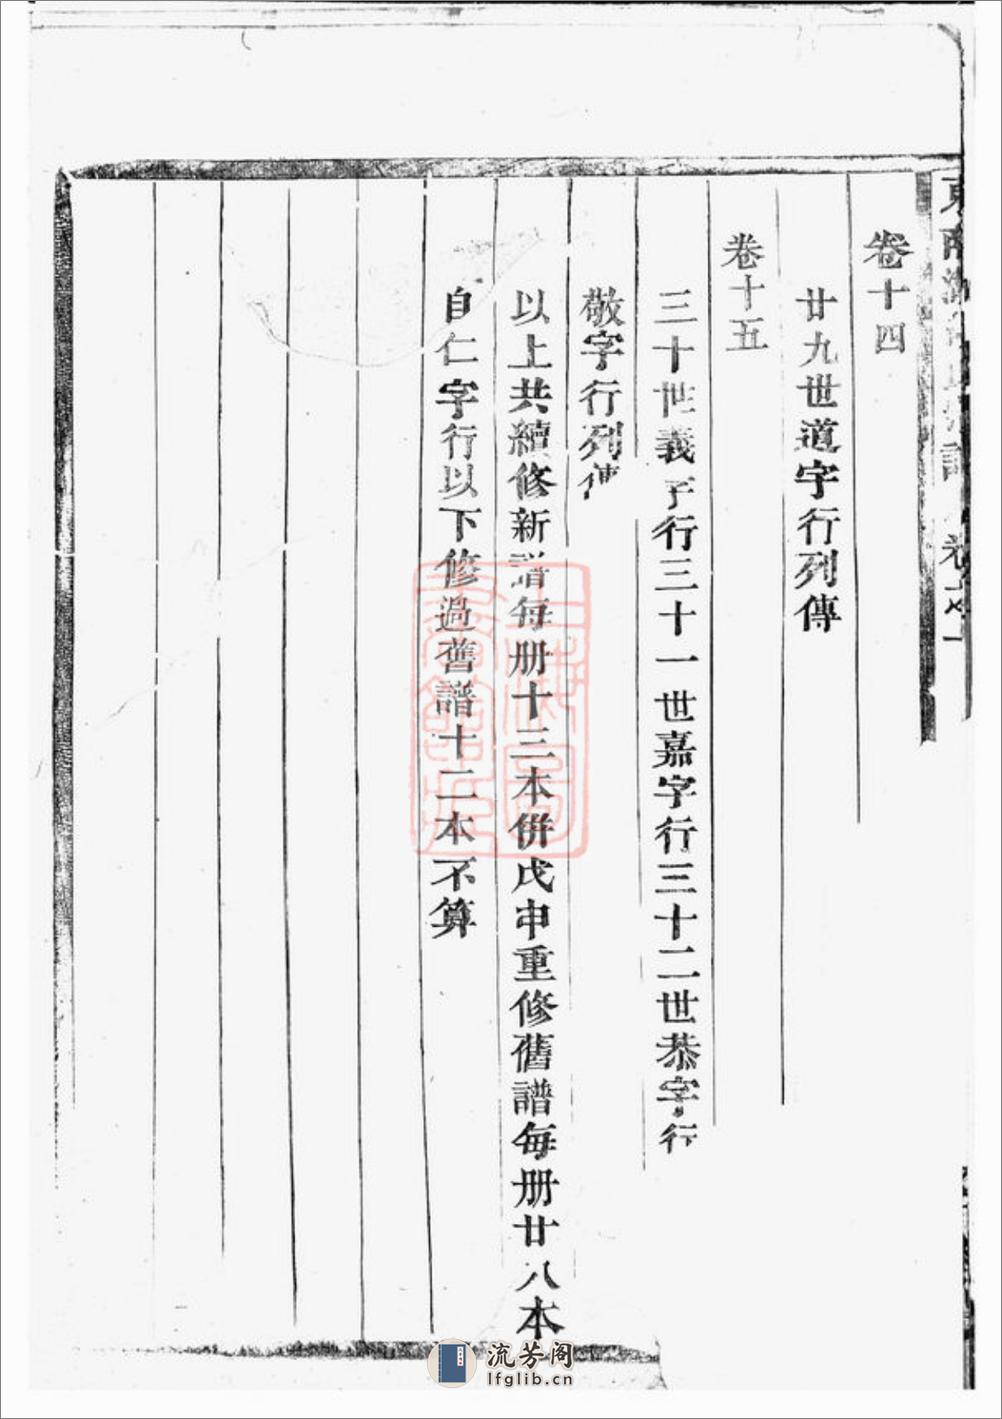 卷十四
廿九世道字行列傳
卷十五
三十世義字行三十一世嘉字行三十二世恭字行
敬字行列傳
以上共續修新譜每册十三本併戊申重修舊譜每册廿八本
自仁字行以下修過舊譜十二本不算
卷之一
流芳阁
lfglib.cn